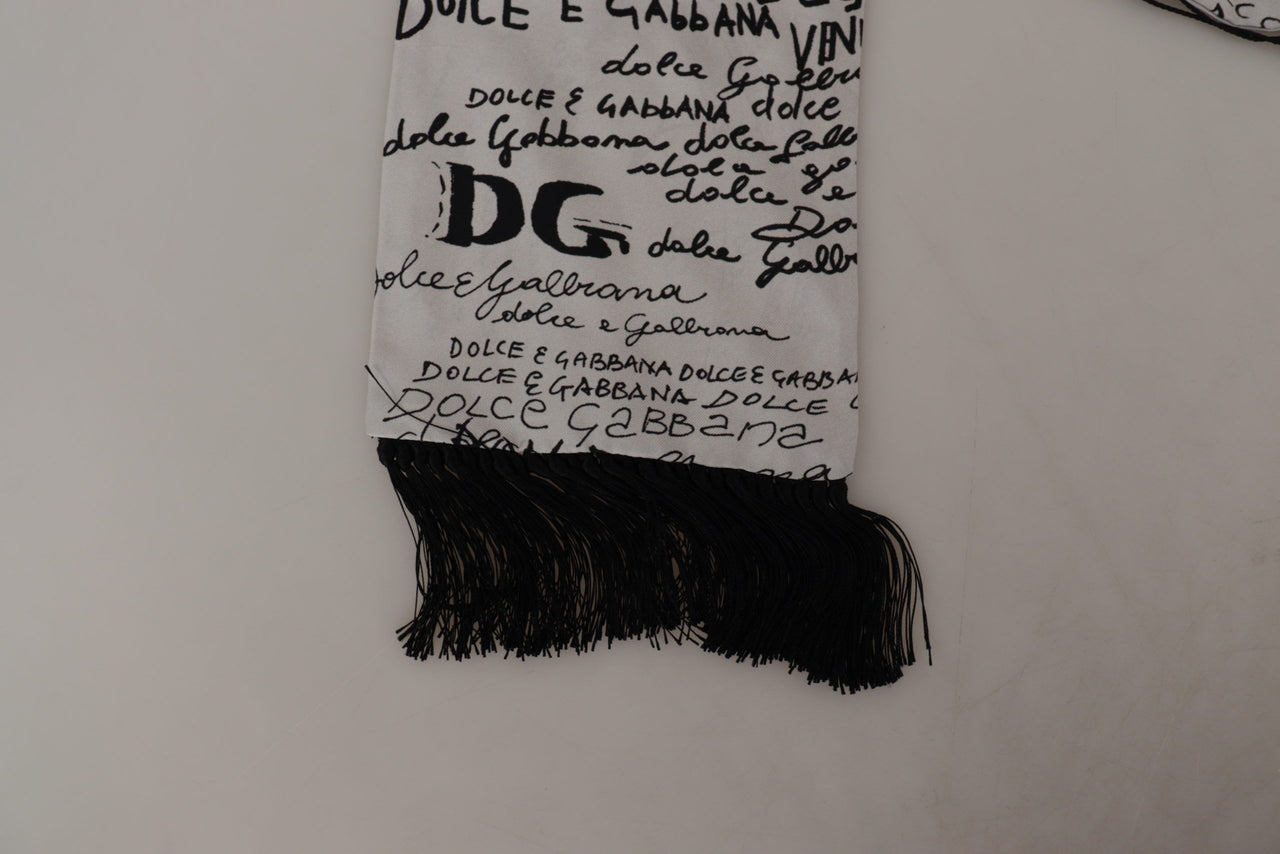 DOLCE E GABBANA
dolce Gabbana
DOLCE & GABBANA dolce
dolce Gabbana dolce Gabb
dolce
dolce
DG dolce Gabb
Dolce & Gabbana
dolce e Gabbana
DOLCE & GABBANA DOLCE & GABBA
DOLCE & GABBANA DOLCE
DOLCE GaBBana